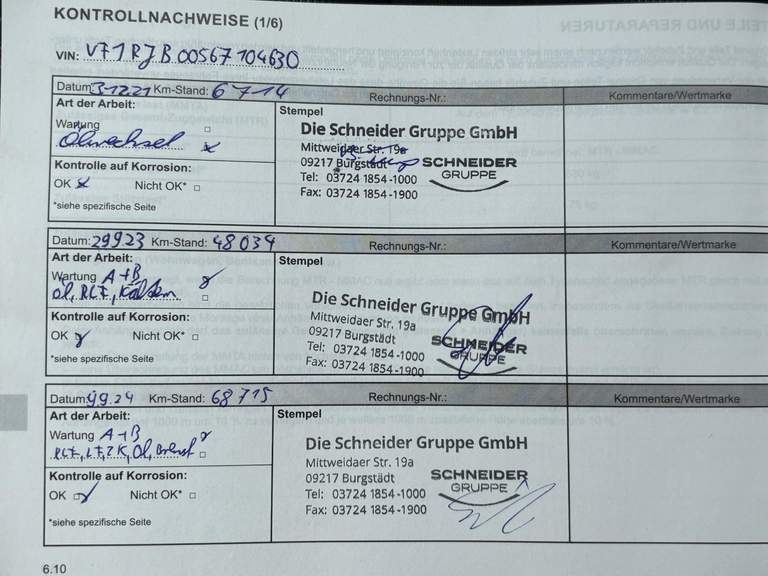 KONTROLLNACHWEISE (1/6)
VIN: VF1RJB00567104630
Datum: 3.12.21 Km-Stand: 6714 Rechnungs-Nr.: Kommentare/Wertmarke
Art der Arbeit: Stempel
Wartung
Ölwechsel
Kontrolle auf Korrosion:
OK Nicht OK*
*siehe spezifische Seite
Die Schneider Gruppe GmbH
Mittweidaer Str. 19a
09217 Burgstädt
Tel: 03724 1854-1000
Fax: 03724 1854-1900
SCHNEIDER
GRUPPE
Datum: 29.9.23 Km-Stand: 48034 Rechnungs-Nr.: Kommentare/Wertmarke
Art der Arbeit: Stempel
Wartung A+B
Öl, RLF,
Kontrolle auf Korrosion:
OK Nicht OK*
*siehe spezifische Seite
Die Schneider Gruppe GmbH
Mittweidaer Str. 19a
09217 Burgstädt
Tel: 03724 1854-1000
Fax: 03724 1854-1900
SCHNEIDER
GRUPPE
Datum: 9.9.24 Km-Stand: 68715 Rechnungs-Nr.: Kommentare/Wertmarke
Art der Arbeit: Stempel
Wartung A+B
RLF, LF, ZK, Öl,
Kontrolle auf Korrosion:
OK Nicht OK*
*siehe spezifische Seite
Die Schneider Gruppe GmbH
Mittweidaer Str. 19a
09217 Burgstädt
Tel: 03724 1854-1000
Fax: 03724 1854-1900
SCHNEIDER
GRUPPE
6.10